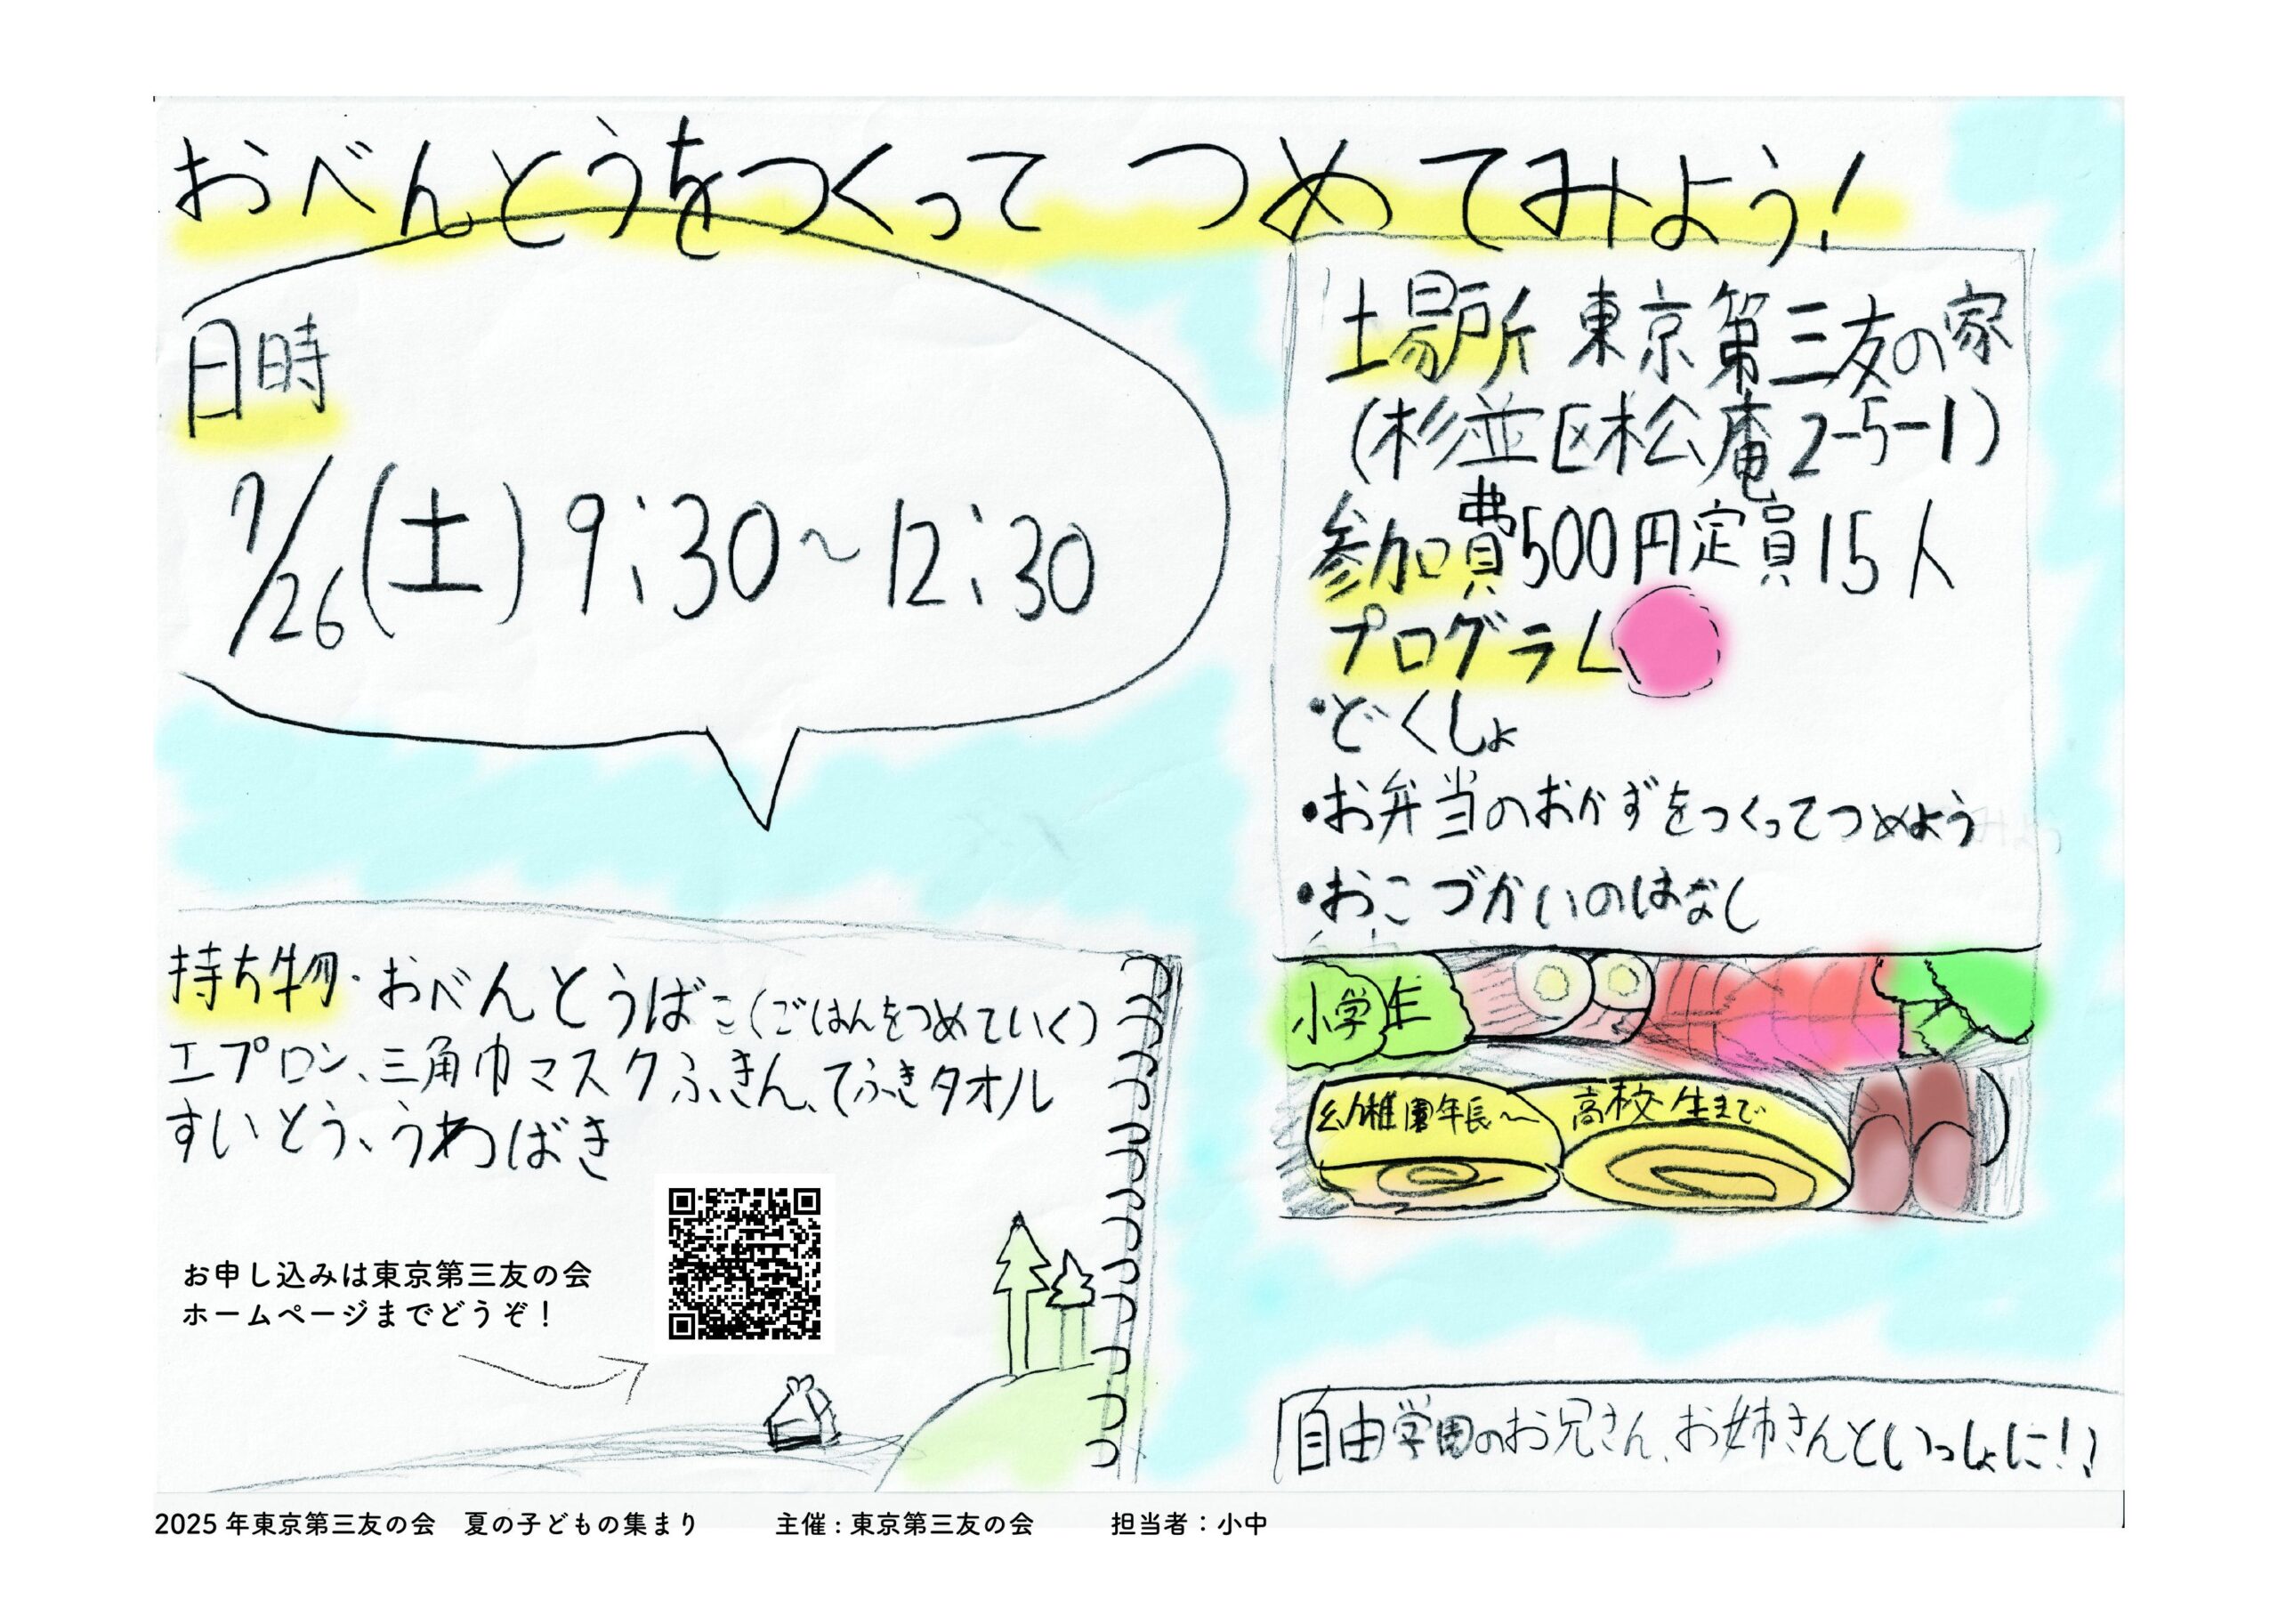 おべんとうをつくって つめてみよう!
日時
7/26(土)9:30~12:30
場所 東京第三友の家
(杉並区松庵2-5-1)
参加費500円定員15人
プログラム
・どくしょ
・お弁当のおかずをつくってつめよう
・おこづかいのはなし
小学生
幼稚園年長~ 高校生まで
持ち物・おべんとうばこ(ごはんをつめていく)
エプロン、三角巾マスクふきん、てふきタオル
すいとう、うわばき
お申し込みは東京第三友の会
ホームページまでどうぞ!
自由学園のお兄さん、お姉さんといっしょに!!
2025年東京第三友の会 夏の子どもの集まり 主催:東京第三友の会 担当者:小中